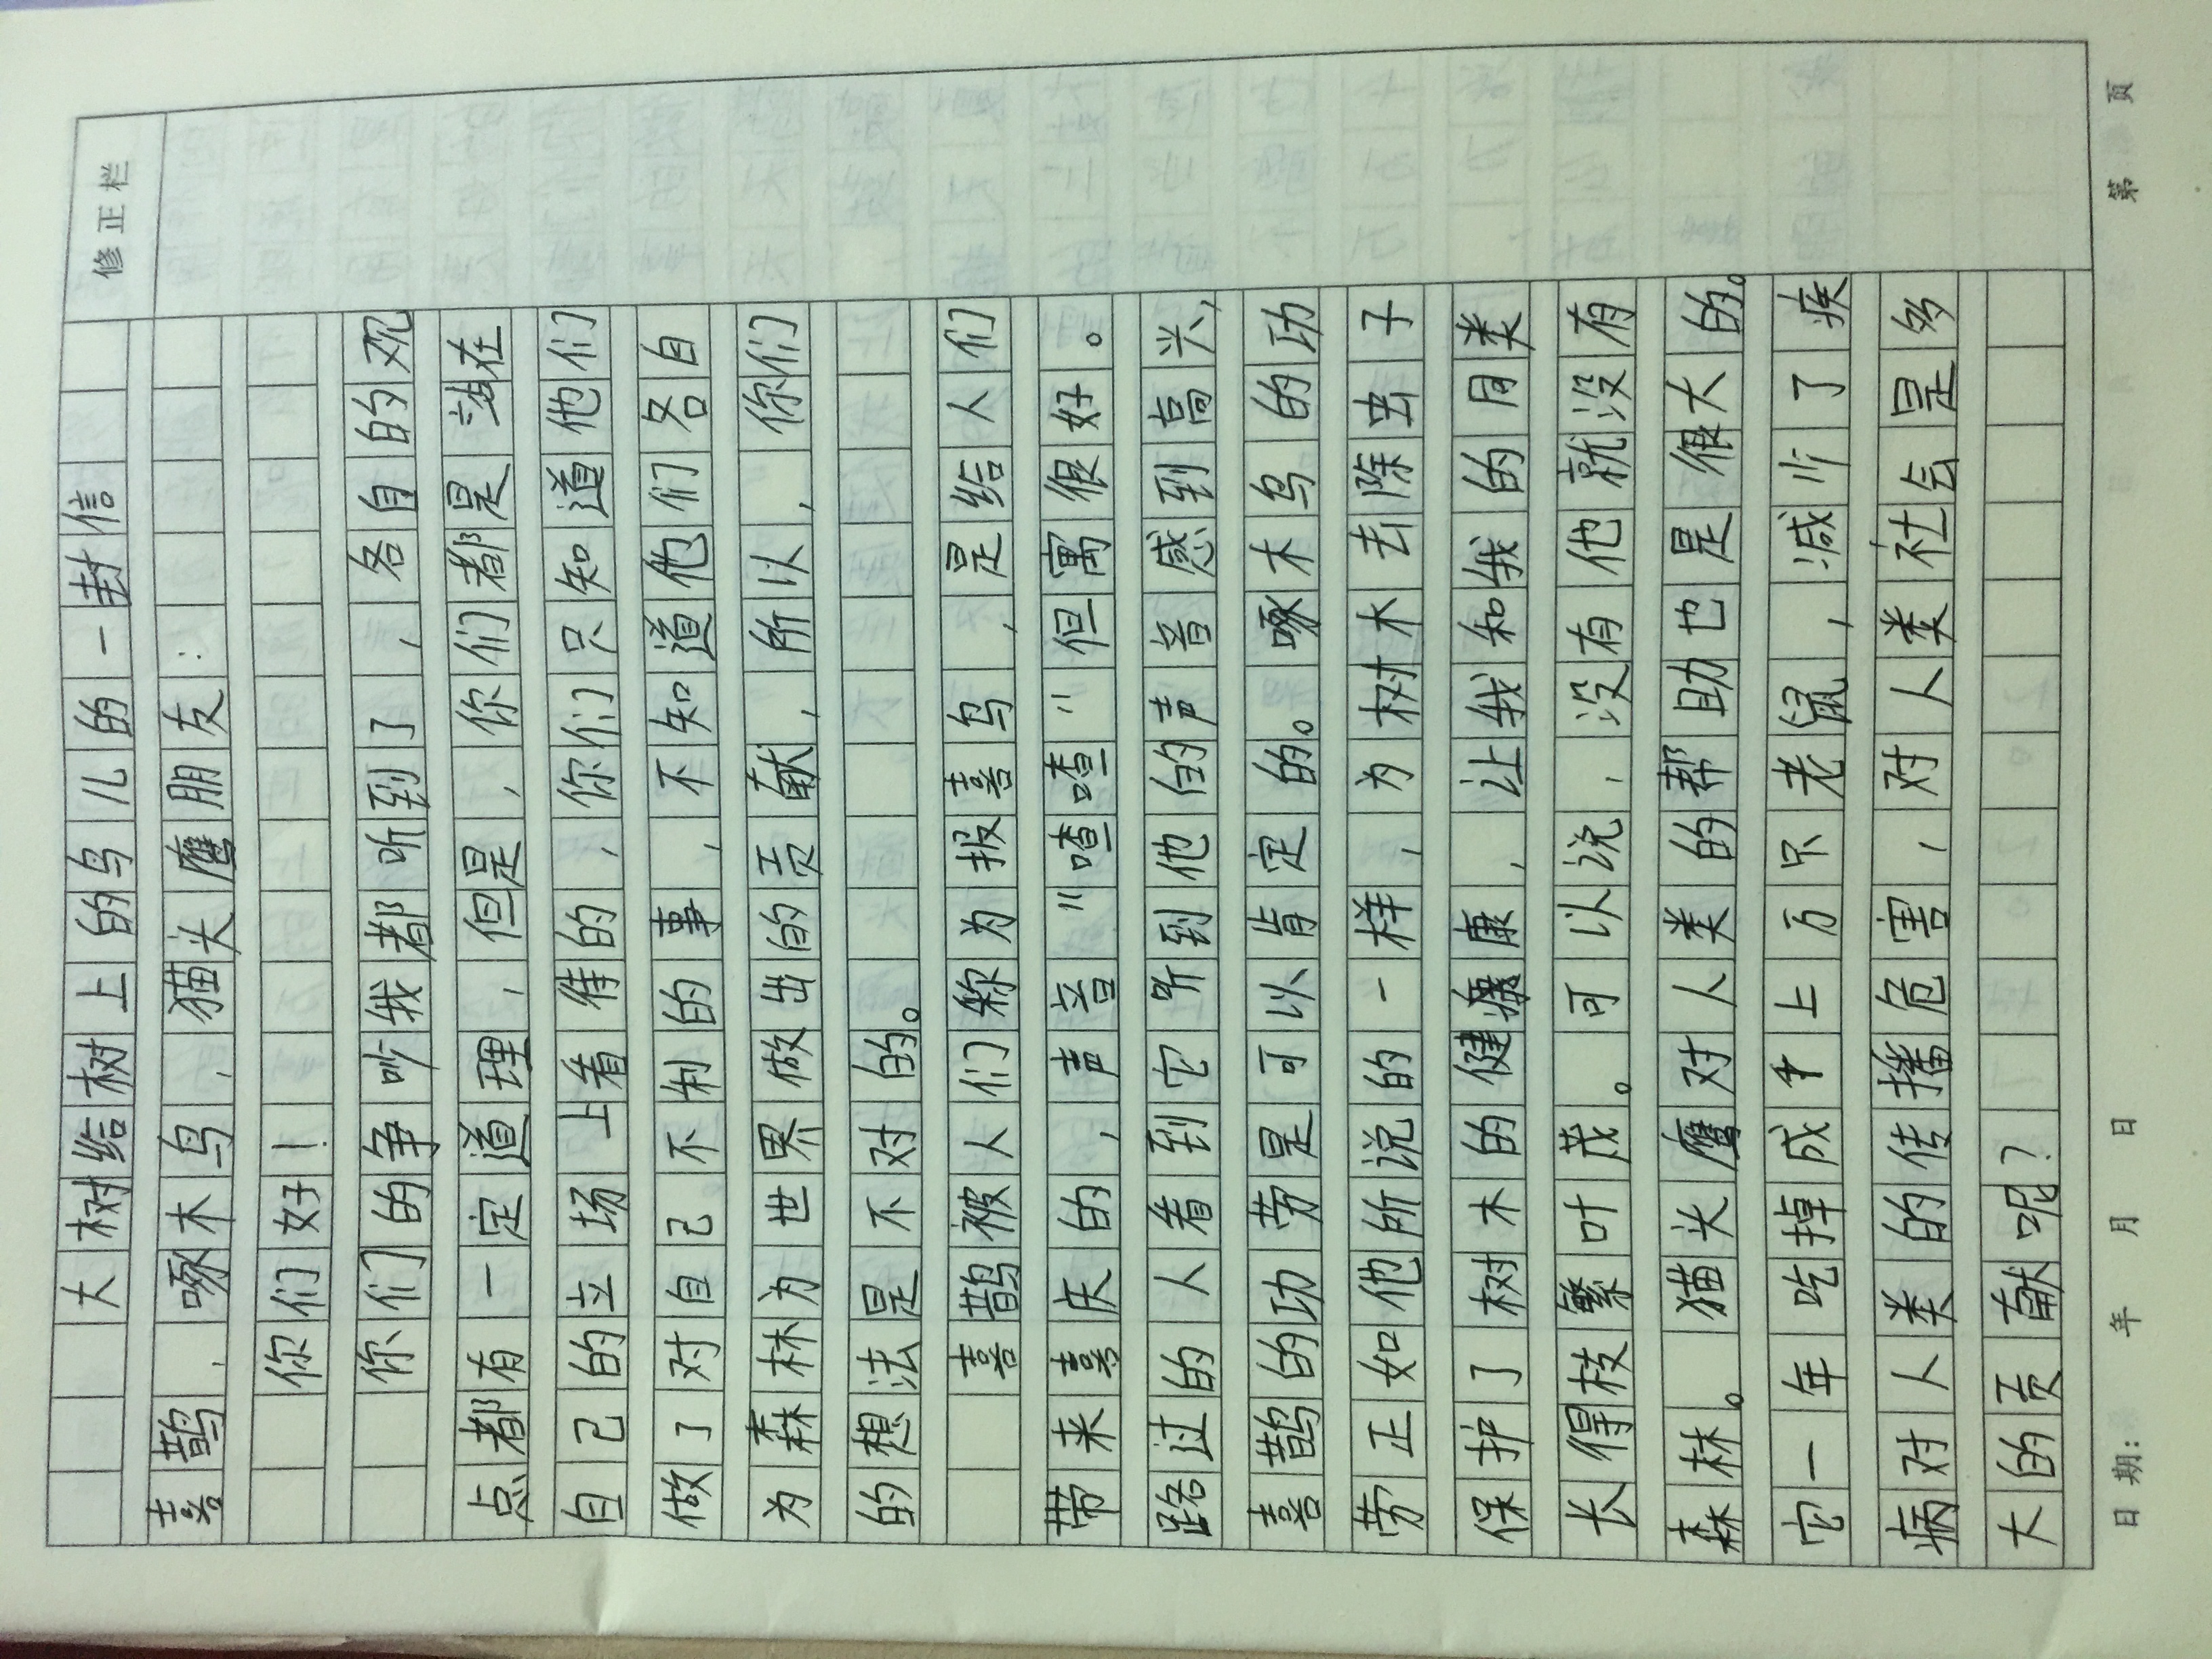 修正栏
大树给树上的鸟儿的一封信
喜鹊,啄木鸟,猫头鹰朋友:
你们好!
你们的争吵我都听到了,各自的观
点都有一定道理,但是,你们都是站在
自己的立场上看待的,你们只知道他们
做了对自己不利的事,不知道他们各自
为森林为世界做出的贡献,所以,你们
的想法是不对的。
喜鹊被人们称为报喜鸟,是给人们
带来喜庆的,声音"喳喳"但寓很好。
路过的人看到它听到他的声音感到高兴,
喜鹊的功劳是可以肯定的。啄木鸟的功
劳正如他所说的一样,为树木去除虫子
保护了树木的健康,让我和我的同类
长得枝繁叶茂。可以说,没有他就没有
森林。猫头鹰对人类的帮助也是很大的。
它一年吃掉成千上万只老鼠,减少了疾
病对人类的传播危害,对人类社会是多
大的贡献呢?
日期: 年 月 日 第 页